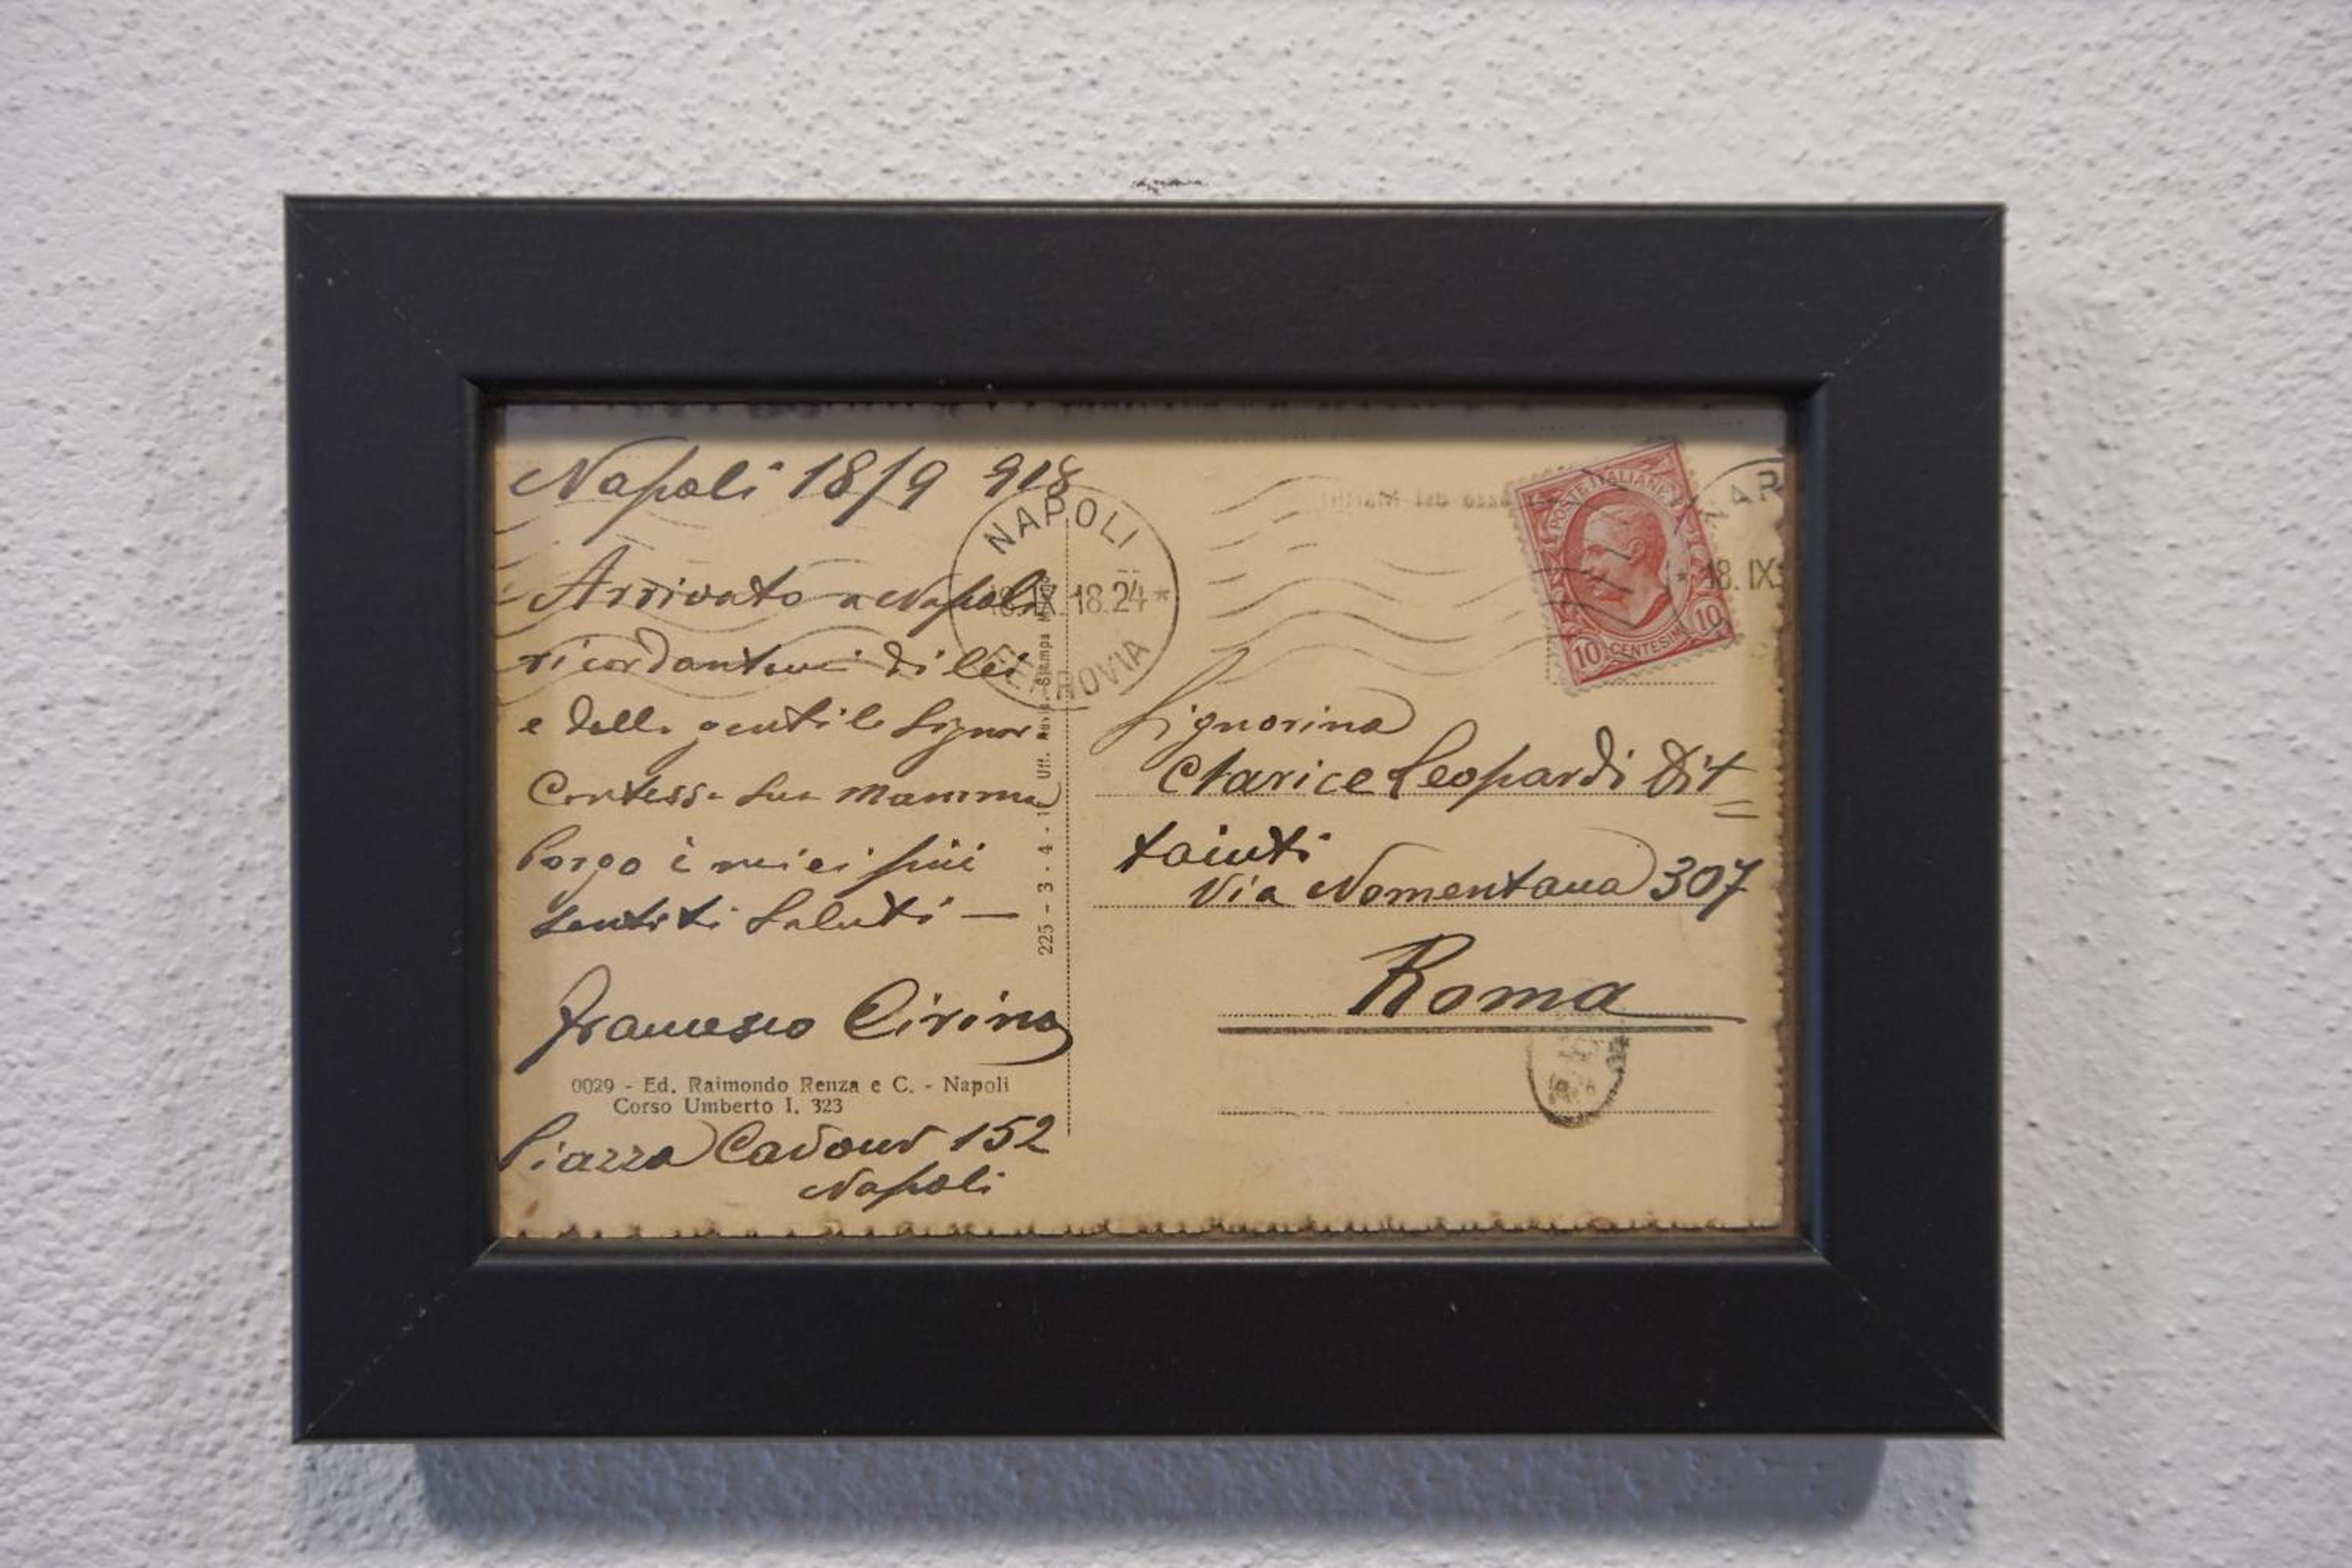 Napoli 18/9 918
Arrivato a Napoli
ricordantomi di lei
e della gentile Signora
Contessa Sua Mamma
Porgo i miei più
sentiti Saluti —
Francesco Cirino
0029 - Ed. Raimondo Renza e C. - Napoli
Corso Umberto I, 323
Piazza Cavour 152
Napoli
NAPOLI
18.IX.18.24*
FERROVIA
225 - 3 - 4 - 1
Uff. Revis. Stampa
POSTE ITALIANE
10 CENTESIMI 10
* 18. IX
Signorina
Clarice Leopardi Dit=
taiuti
Via Nomentana 307
Roma